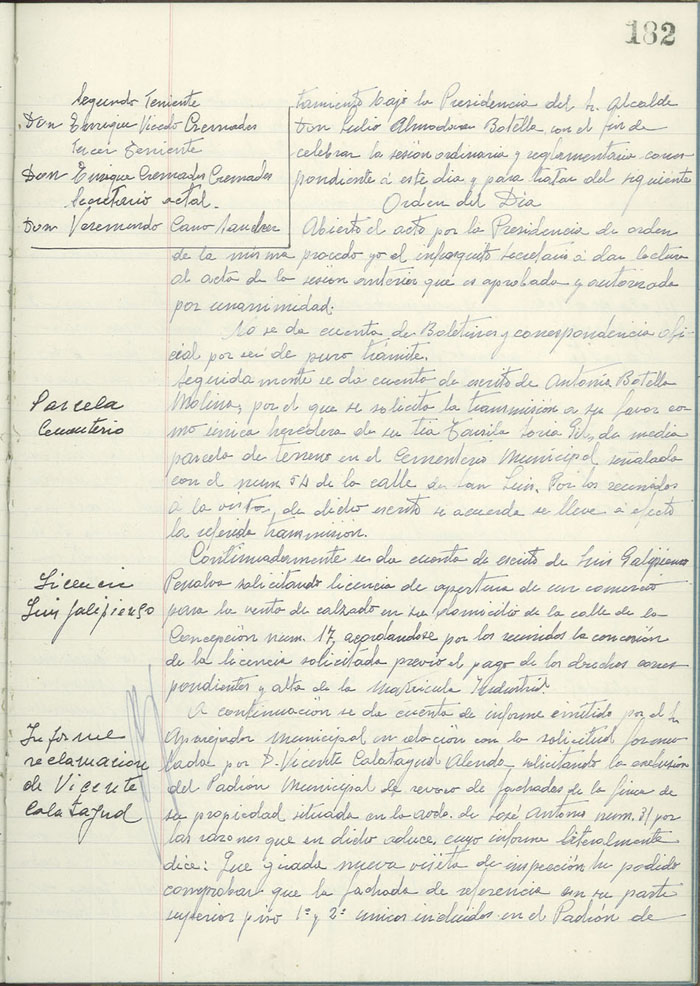 182
Segundo Teniente
Don Enrique Vicedo Cremades
Tercer Teniente
Don Enrique Cremades Cremades
Secretario actal.
Don Veremundo Cano Sanchez
tamiento bajo la Presidencia del Sr. Alcalde
Don Julio Almodovar Botella con el fin de
celebrar la sesión ordinaria y reglamentaria corres-
pondiente á este dia y para tratar del siguiente
Orden del Dia
Abierto el acto por la Presidencia de orden
de la misma procedo yo el infrascrito Secretario a dar lectura
al acta de la sesión anterior que es aprobada y autorizada
por unanimidad.
No se da cuenta de Boletines y correspondencia ofi-
cial por ser de puro trámite.
Parcela
Cementerio
Seguidamente se da cuenta de escrito de Antonia Botella
Molina, por el que se solicita la transmisión a su favor co-
mo única heredera de su tia Soria Gil, de media
parcela de terreno en el Cementerio Municipal señalada
con el num 54 de la calle de San Luis. Por los reunidos
á la vista de dicho escrito se acuerda se lleve á efecto
la referida transmisión.
Licencia
Luis Galipienso
Continuadamente se da cuenta de escrito de Luis Galipienso
Penalva solicitando licencia de apertura de un comercio
para la venta de calzado en su domicilio de la calle de la
Concepción num. 17, acordandose por los reunidos la concesión
de la licencia solicitada previo el pago de los derechos corres-
pondientes y alta de la Matricula Industrial
Informe
reclamacion
de Vicente
Calatayud
A continuación se da cuenta de informe emitido por el Sr
Aparejador municipal en relación con la solicitud formu-
lada por D. Vicente Calatayud Alenda solicitando la exclusión
del Padrón Municipal de revoco de fachadas de la finca de
su propiedad situada en la avda. de José Antonio num. 31 por
las razones que en dicho aduce, cuyo informe literalmente
dice: Que girada nueva visita de inspección he podido
comprobar que la fachada de referencia en su parte
superior piso 1º y 2º unicos incluidos en el Padrón de